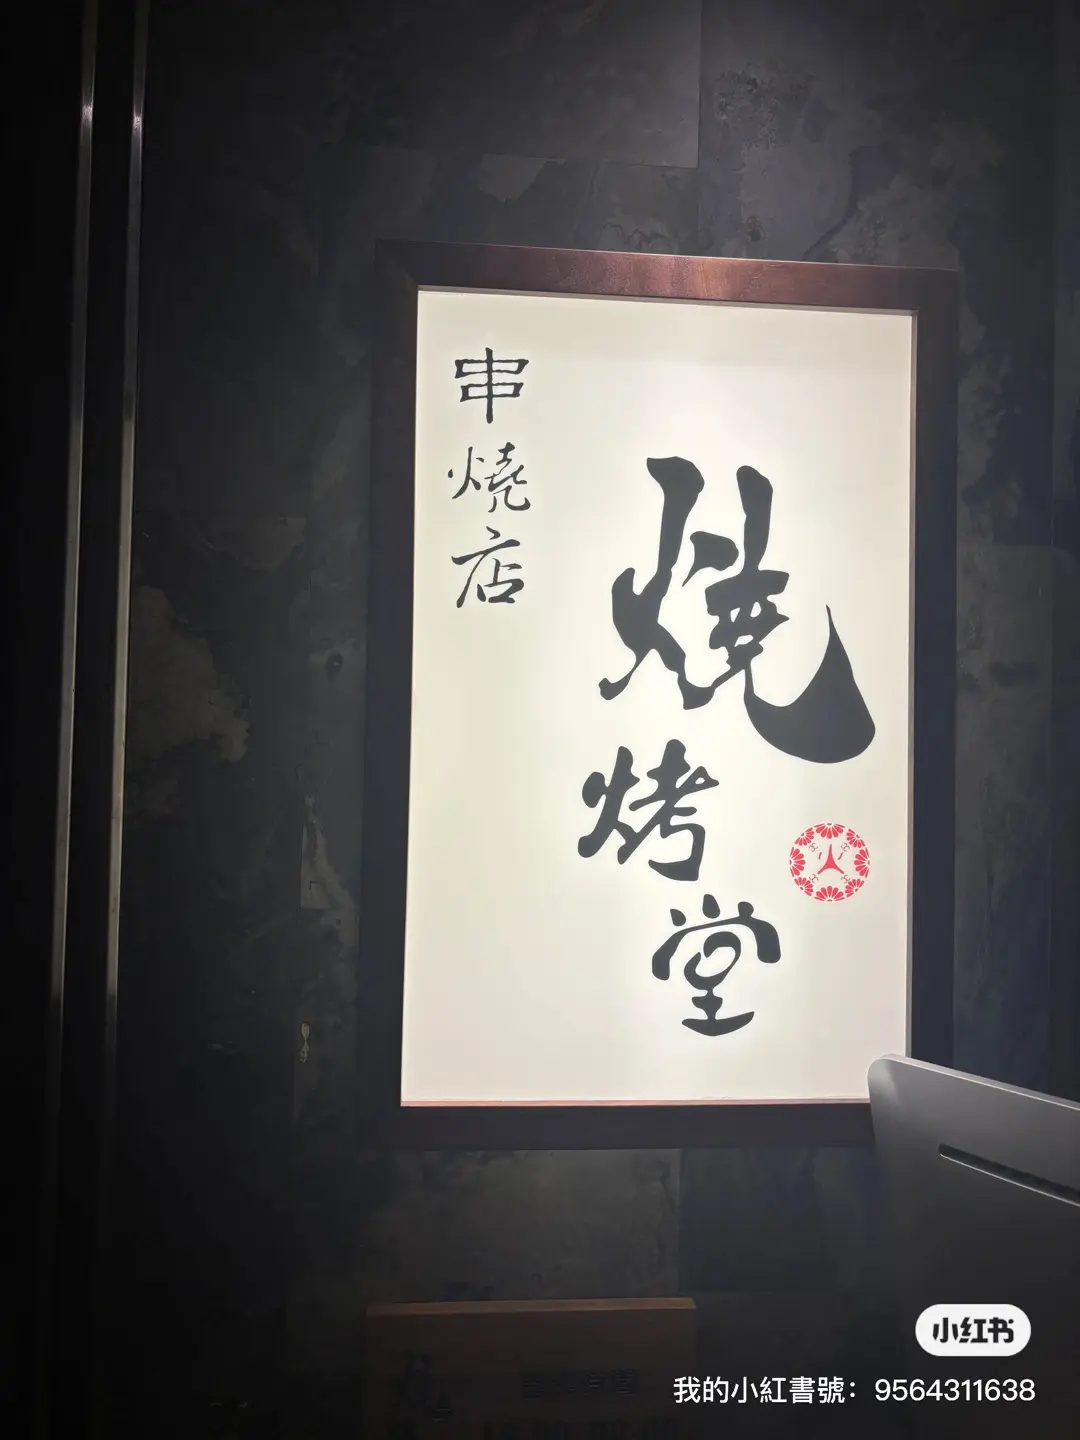 串燒店
燒烤堂
火
小红书
我的小紅書號：9564311638